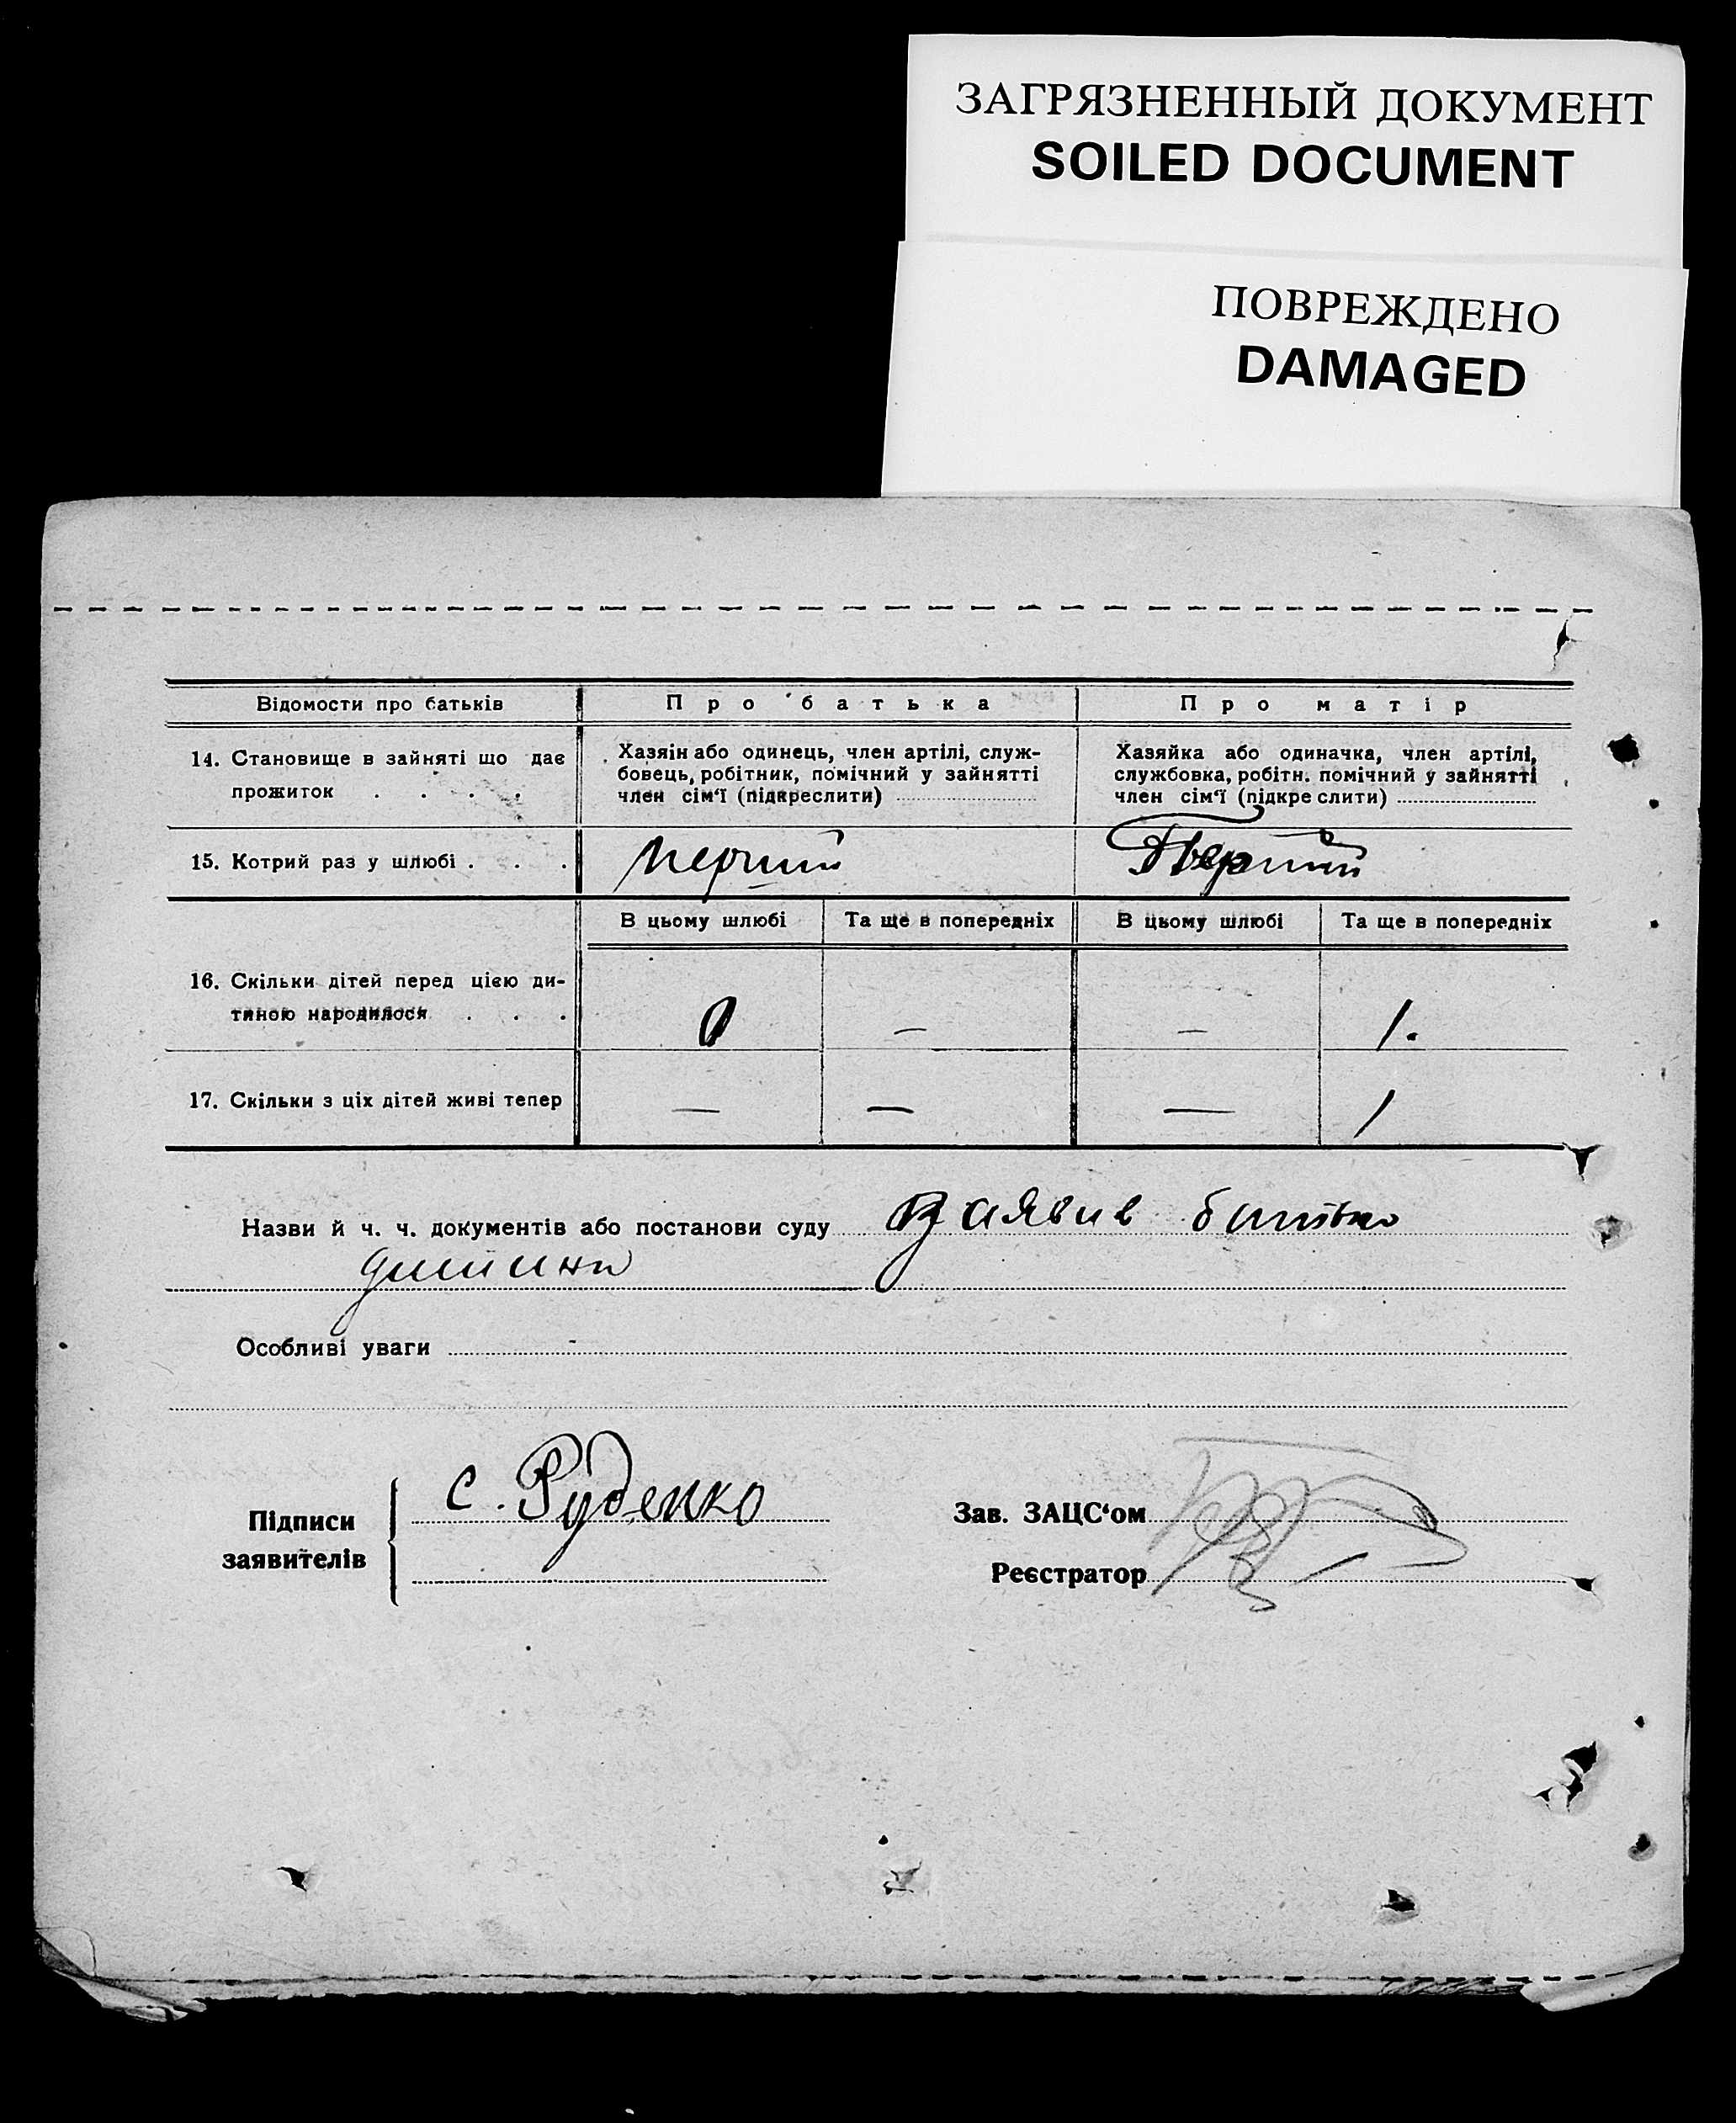 ЗАГРЯЗНЕННЫЙ ДОКУМЕНТ
SOILED DOCUMENT
ПОВРЕЖДЕНО
DAMAGED
Відомости про батьків Про батька Про матір
14. Становище в зайняті що дає
прожиток . . . .
Хазяін або одинець, член артілі, служ-
бовець, робітник, помічний у зайнятті
член сім‘ї (підкреслити)
Хазяйка або одиначка, член артілі,
службовка, робітн. помічний у зайнятті
член сім‘ї (підкреслити)
15. Котрий раз у шлюбі . . . перший Перший
В цьому шлюбі Та ще в попередніх В цьому шлюбі Та ще в попередніх
16. Скільки дітей перед цією ди-
тиною народилося . . . 0 — — 1.
17. Скільки з ціх дітей живі тепер — — — 1
Назви й ч. ч. документів або постанови суду Заявив батько
дитини
Особливі уваги
Підписи
заявителів
С. Руденко
Зав. ЗАЦС‘ом
Реєстратор